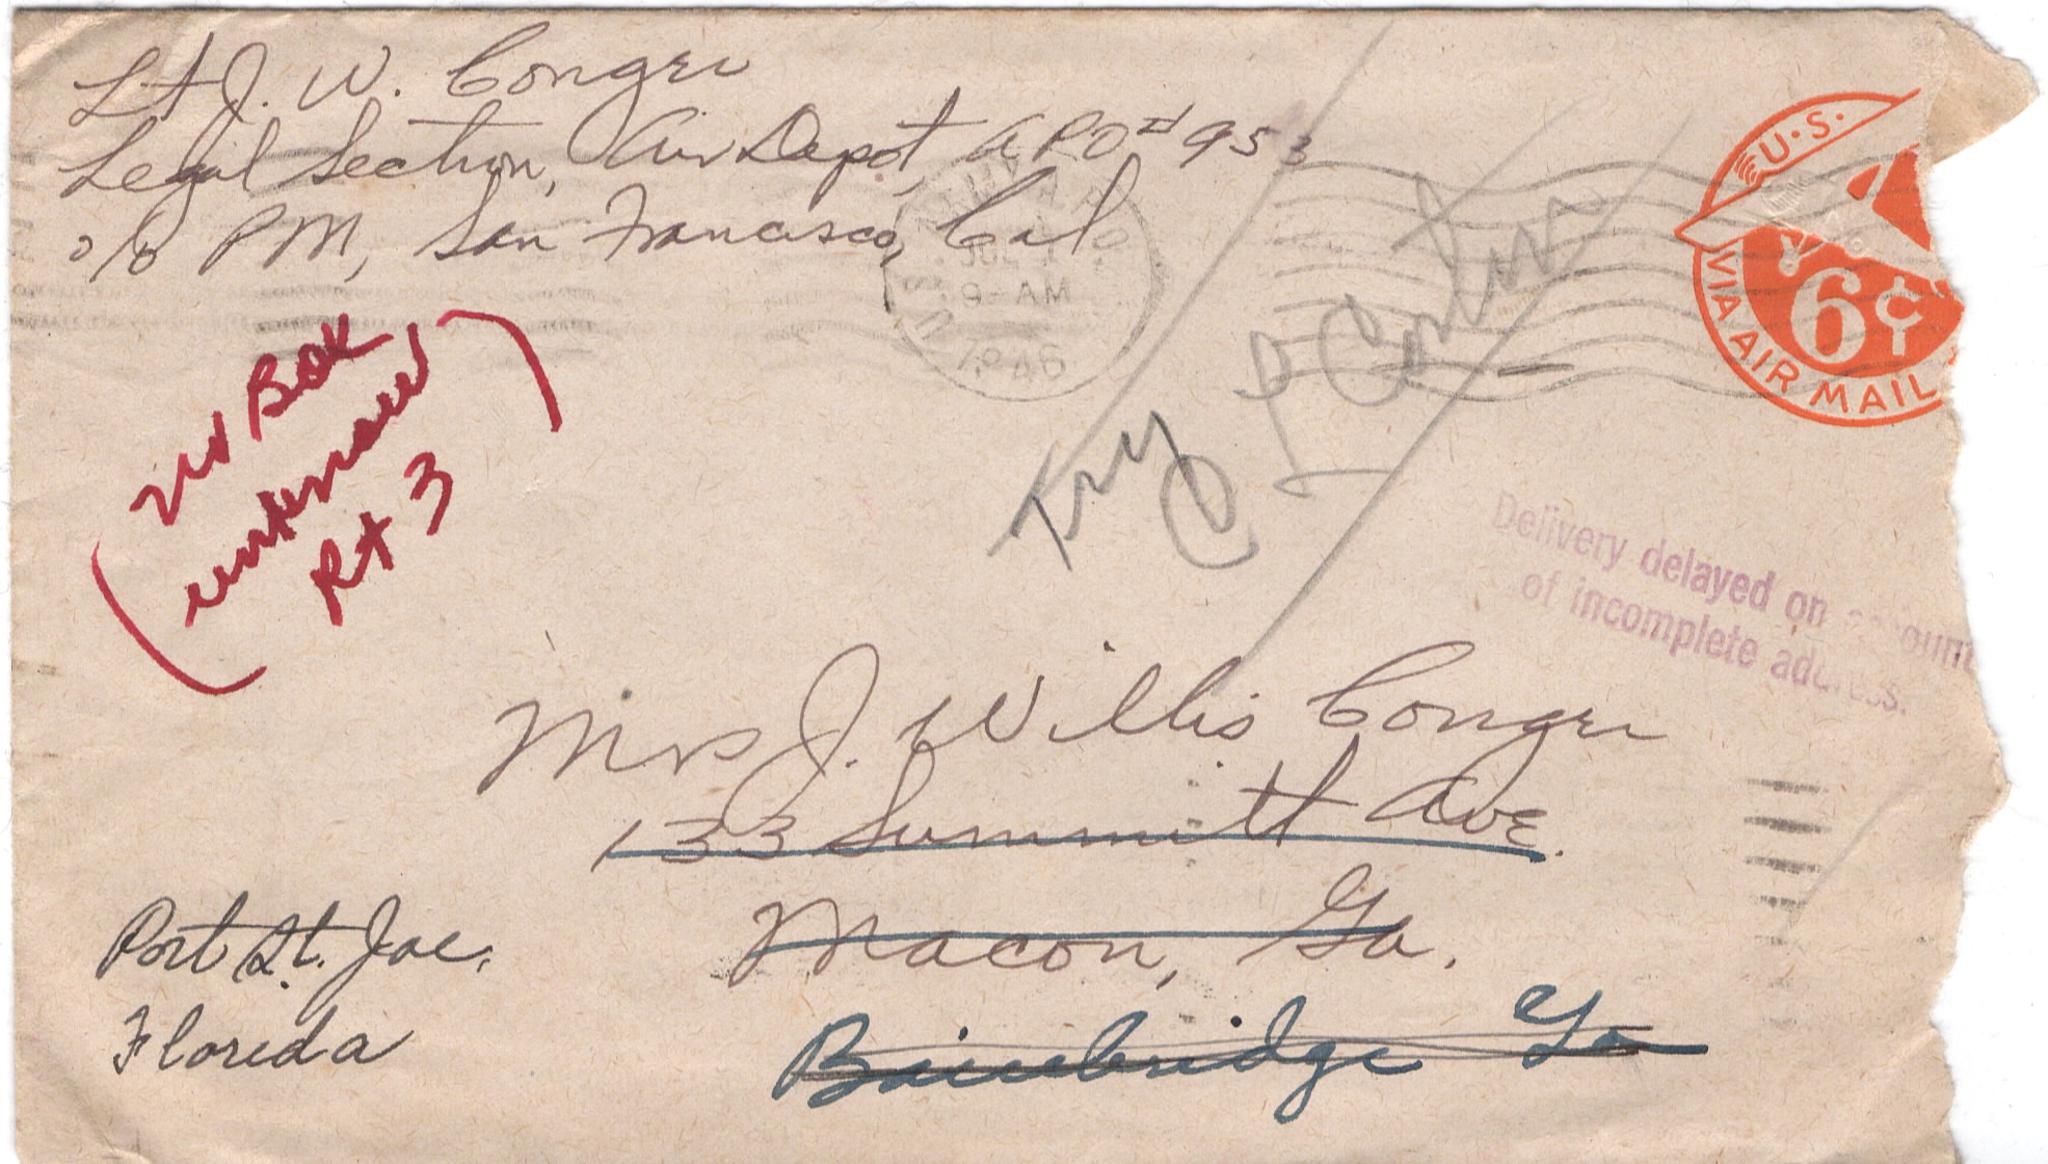 Lt J. W. Conger
Legal Section, Air Depot, APO # 953
c/o PM, San Francisco, Cal
U.S.
6¢
VIA AIR MAIL
JUL
9-AM
1946
no Box
unknown
Rt 3
Try
C
Delivery delayed on account
of incomplete address.
Mrs J. Willis Conger
133 Summitt Ave.
Macon, Ga.
Bainebridge Ga
Port St. Joe,
Florida